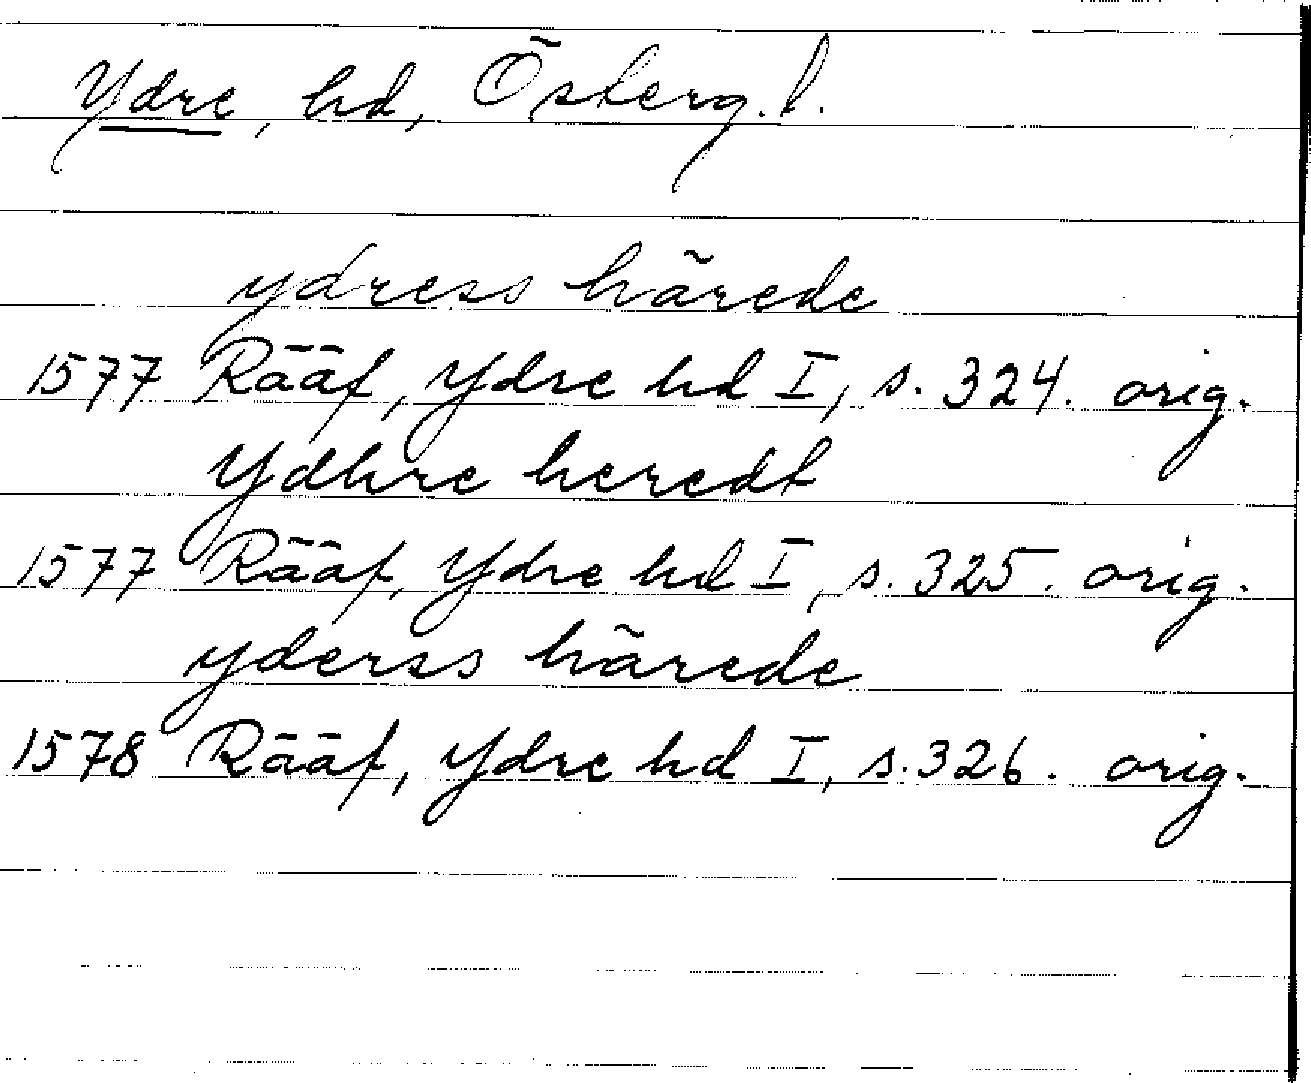 Ydre, hd, Österg. l.
ydress härede
1577 Rääf, Ydre hd I, s. 324. orig.
Ydhre heredt
1577 Rääf, Ydre hd I, s. 325. orig.
yderss härede
1578 Rääf, Ydre hd I, s. 326. orig.